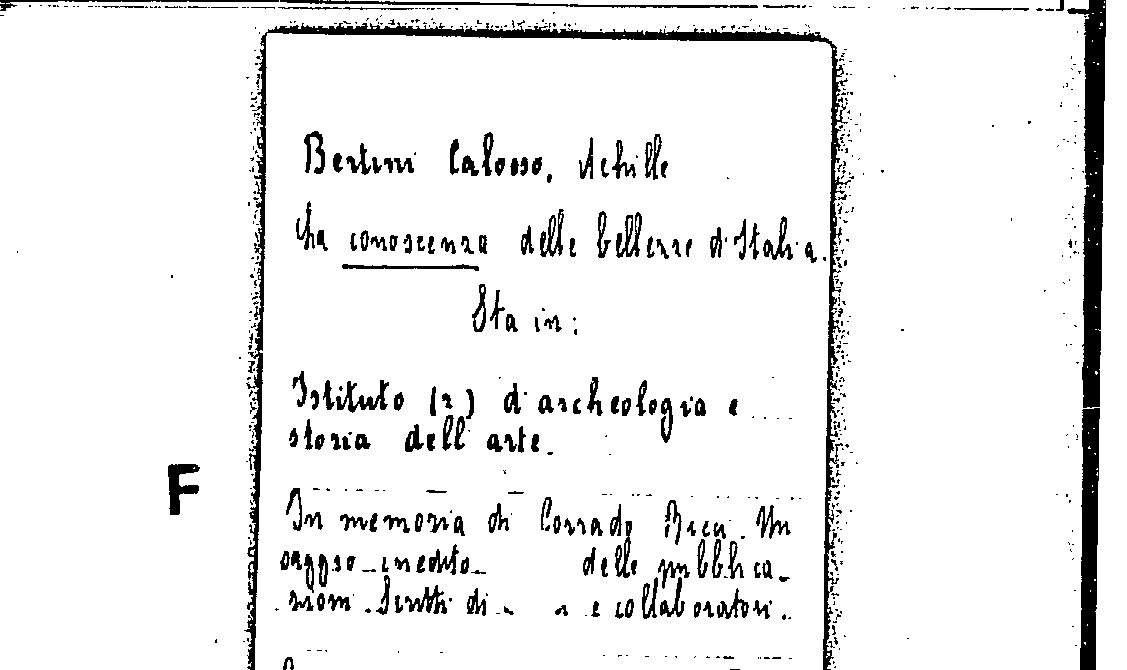 Bertini Calosso, Achille
La conoscenza delle bellezze d'Italia.
Sta in:
Istituto (r) d'archeologia e
storia dell'arte.
F
In memoria di Corrado Ricci. Un
saggio inedito delle pubblica-
zioni. Scritti di e collaboratori.